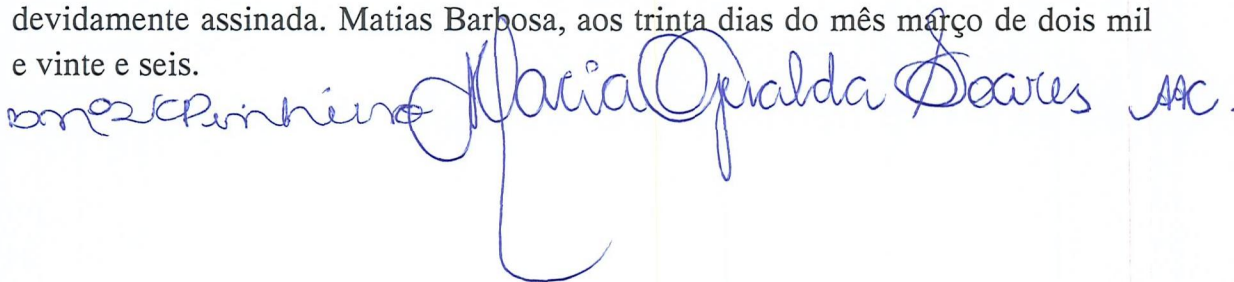 devidamente assinada. Matias Barbosa, aos trinta dias do mês março de dois mil
e vinte e seis.
Pinheiro Maria Geralda Soares